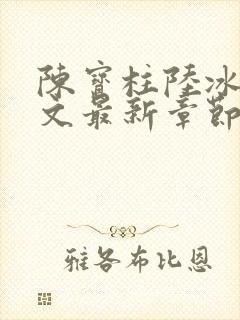 陳寶柱陸冰
文最新章節
雅各布比恩